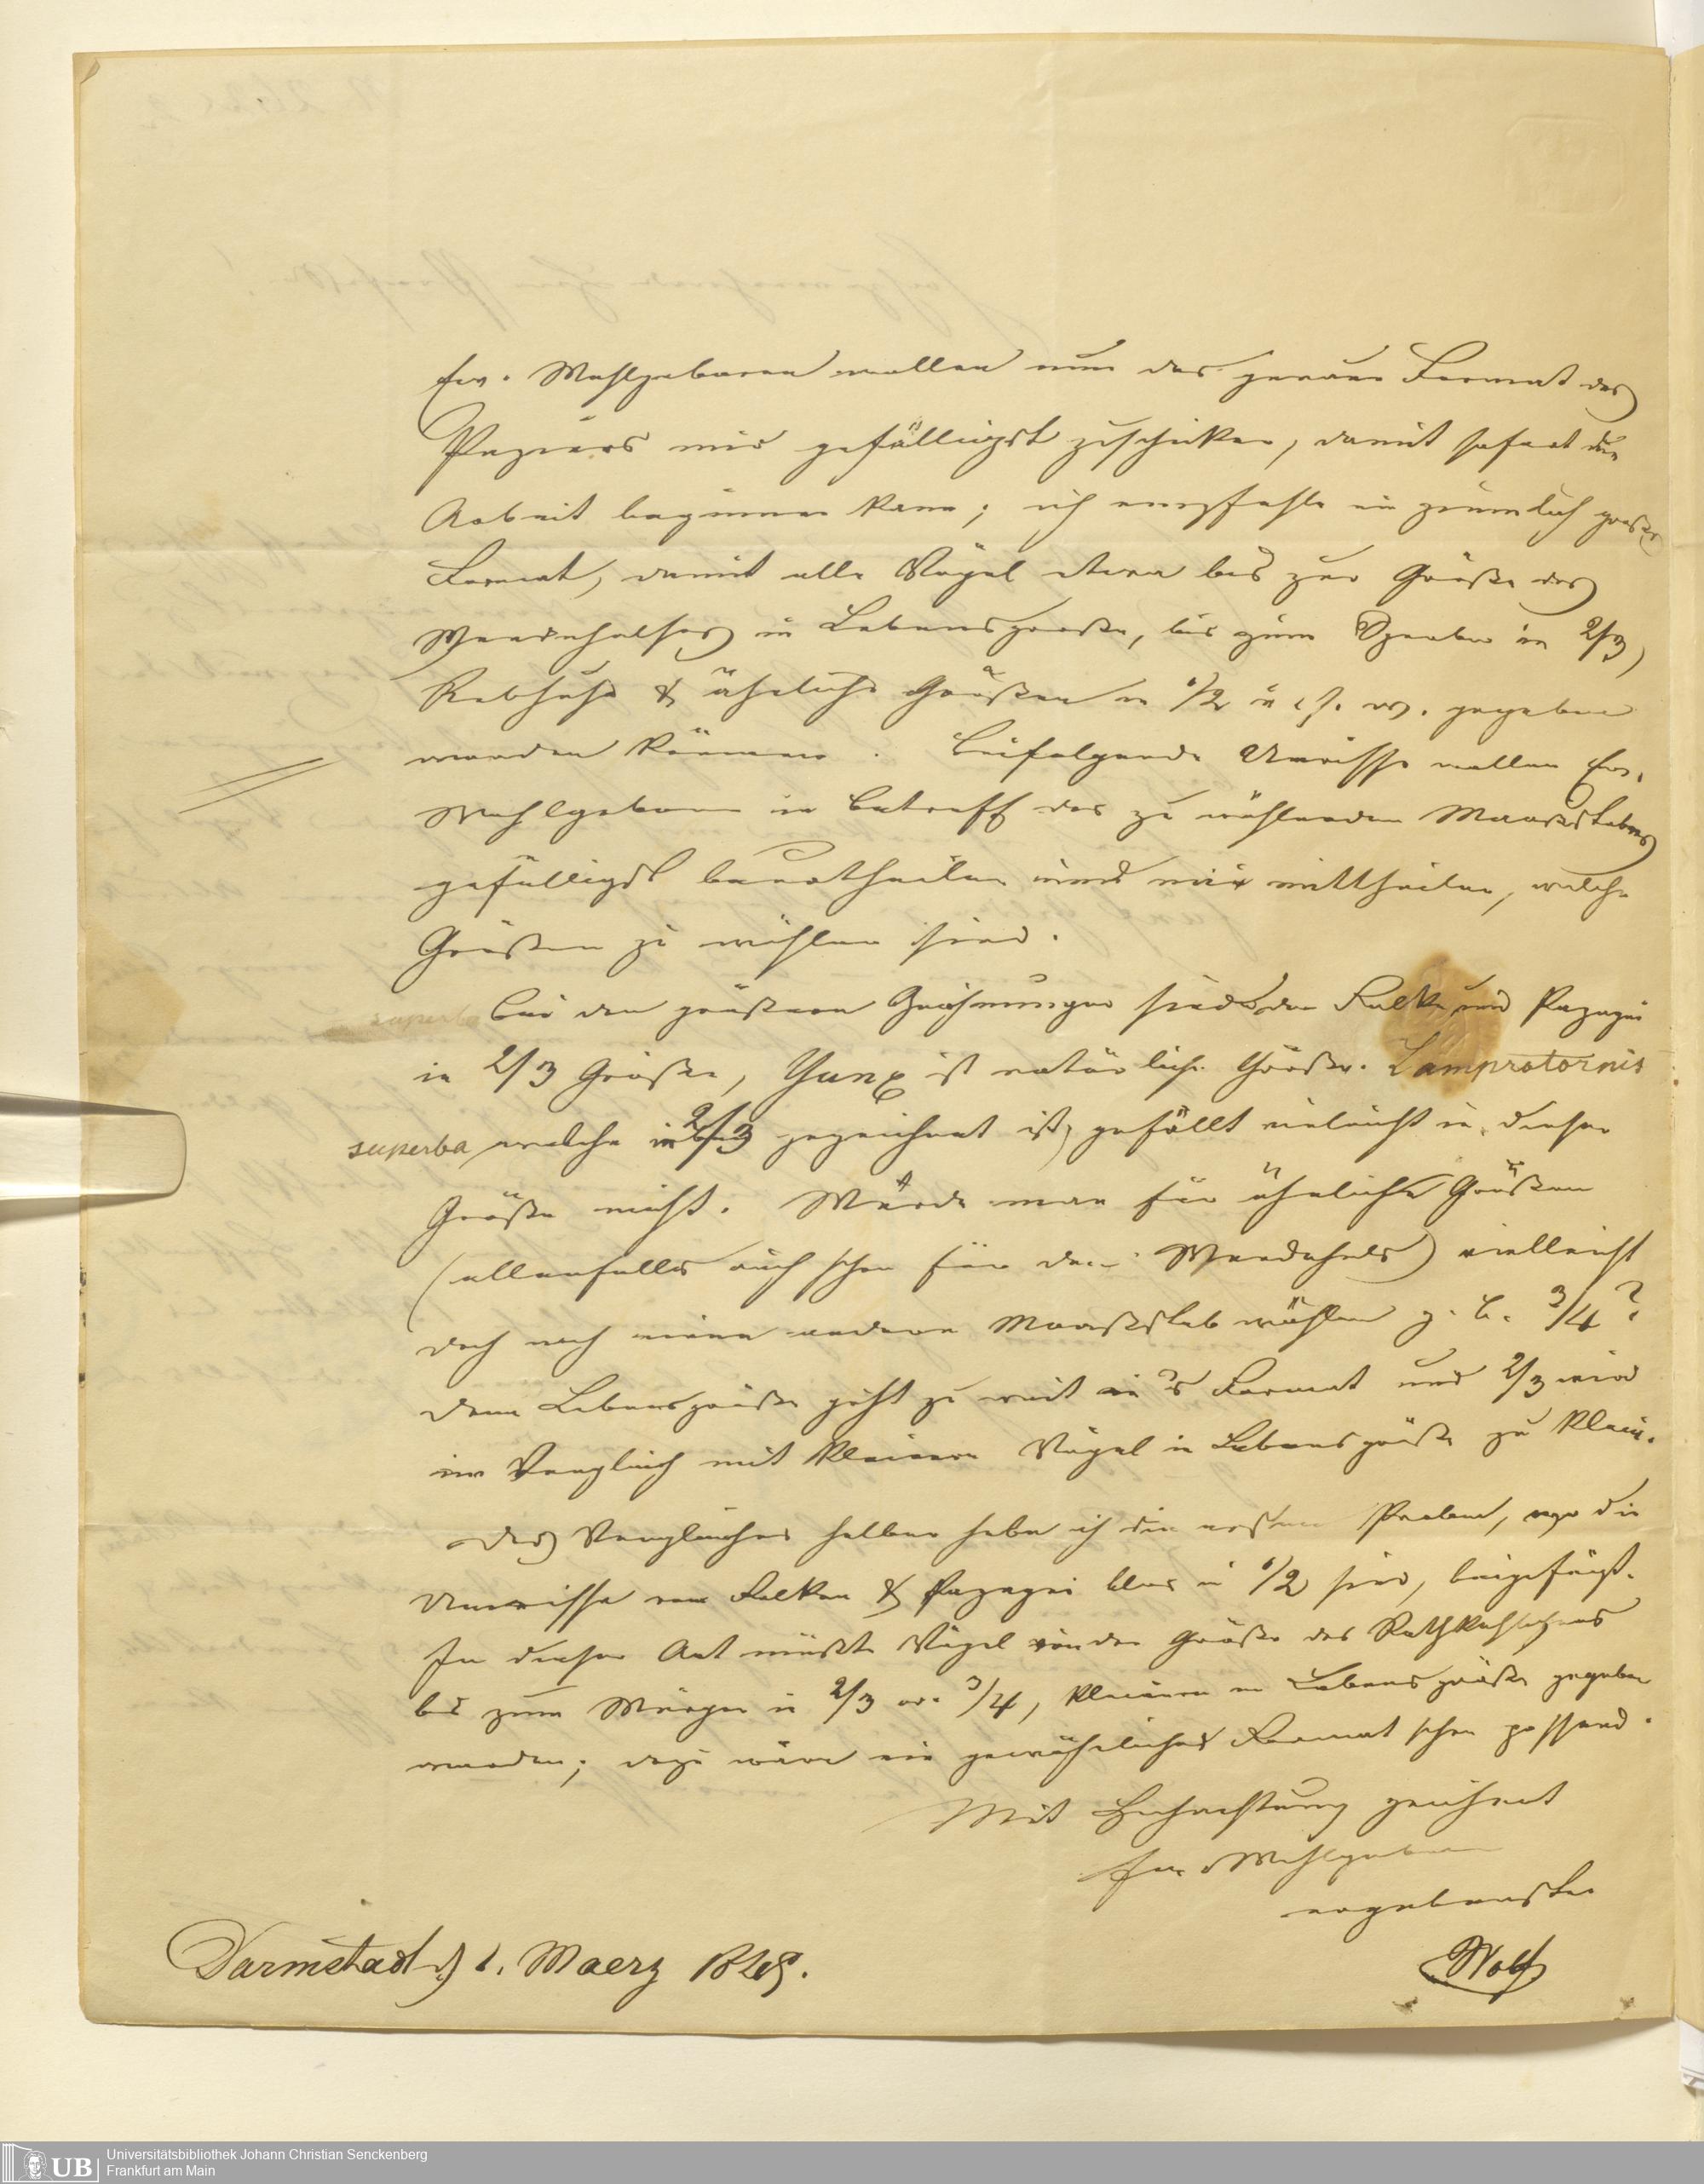 Ew. Wohlgeboren wollen nun das genaue Format des
Papiers mir gefälligst zuschicken, damit sofort die
Arbeit beginnen kann; ich empfehle ein ziemlich großes
Format, damit alle Vögel etwa bis zur Größe des
Wendehalses in Lebensgroeße, bis zum Sperber in 2/3,
Rebhuhn & ähnliche Größen in 1/2 u. s. w. gegeben
werden können. Beifolgende Umrisse wollen Ew.
Wohlgeboren in Betreff des zu wählenden Maasstabes
gefälligst beurtheilen und mir mittheilen, welche
Größen zu wählen sind.
Bei den größeren Zeichnungen sind der Falke und Papagei
in 2/3 Größe, Yunx ist natürliche Größe. Lamprotornis
superba welche in 2/3 gezeichnet ist, gefällt vieleicht in dieser
Größe nicht. Würde man für ähnliche Größen
(allenfalls auch schon für den Wendehals) vielleicht
doch noch einen andern Maasstab wählen z. B. 3/4?
denn Lebensgröße geht zu weit in's Format und 2/3 wird
im Vergleich mit kleinern Vögel in Lebensgröße zu klein.
Des Vergleiches halber habe ich die ersten Proben, wo die
Umrisse von Falken & Papagei blos in 1/2 sind, beigefügt.
In dieser Art müßte Vögel von der Größe des Rothkehlchens
bis zum Würger in 2/3 od. 3/4, kleinere in Lebensgröße gegeben
werden; dazu wäre ein gewöhnliches Format schon passend.
Mit Hochachtung zeichnet
Ew. Wohlgeboren
ergebenster
Wolf
Darmstadt d. 1. Maerz 1848.
Universitätsbibliothek Johann Christian Senckenberg
UB Frankfurt am Main